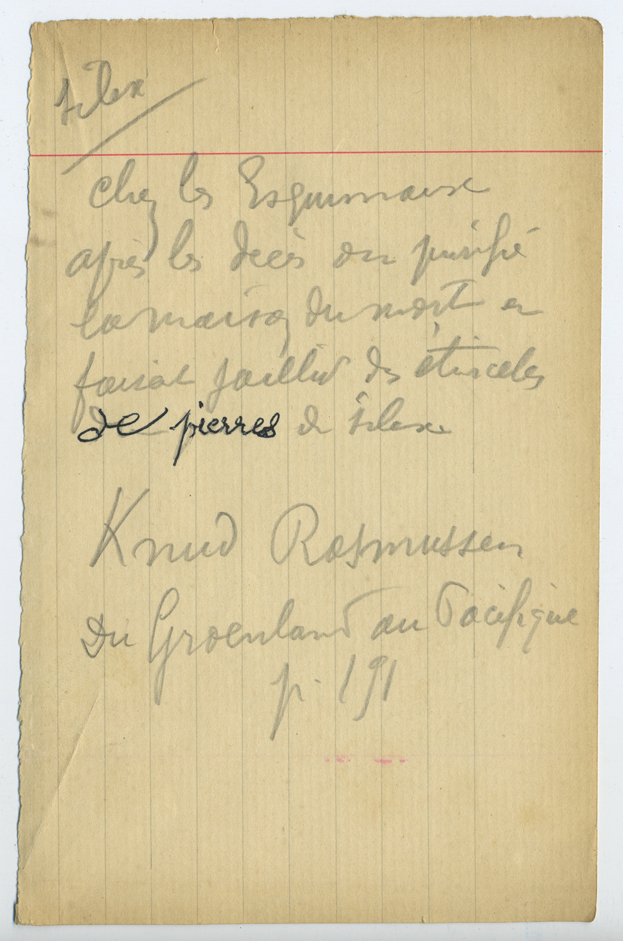 silex
chez les Esquimaux
après les décès on purifie
la maison du mort en
faisant jaillir des étincelles
de pierres de silex
Knud Rasmussen
Du Groenland au Pacifique
p. 191